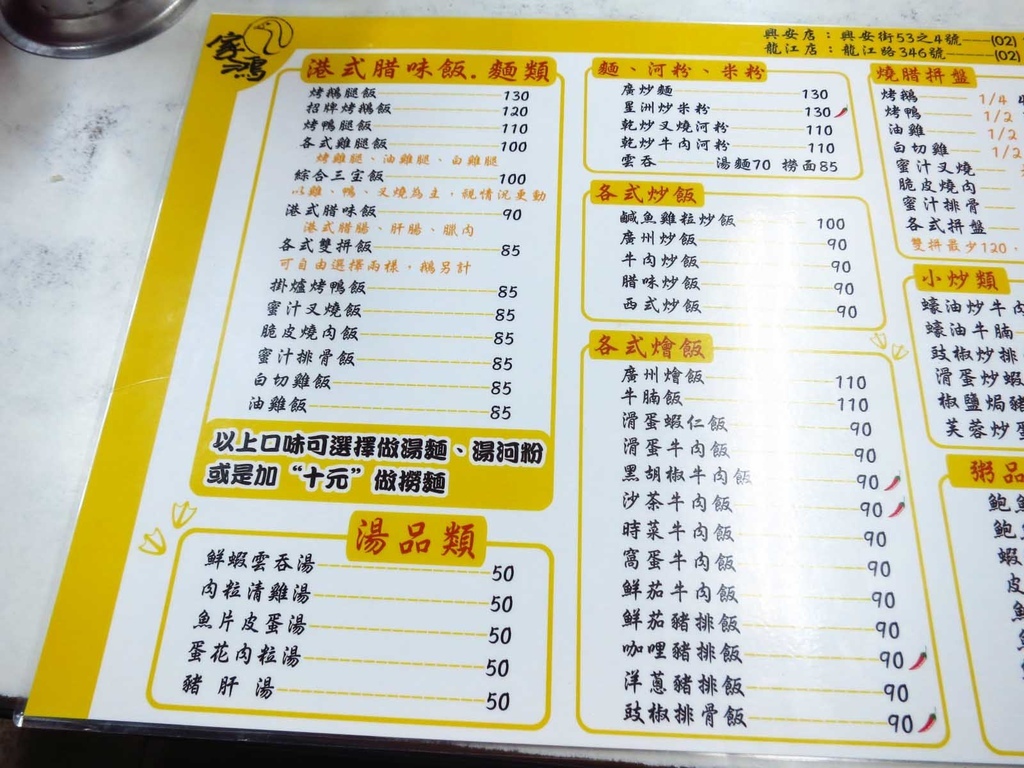 家鴻
興安店：興安街53之4號——(02)
龍江店：龍江路346號——(02)
港式腊味飯.麵類
烤鵝腿飯 130
招牌烤鵝飯 120
烤鴨腿飯 110
各式雞腿飯 100
烤雞腿、油雞腿、白雞腿
綜合三宝飯 100
以雞、鴨、叉燒為主，視情況更動
港式腊味飯 90
港式腊腸、肝腸、臘肉
各式雙拼飯 85
可自由選擇兩樣，鵝另計
掛爐烤鴨飯 85
蜜汁叉燒飯 85
脆皮燒肉飯 85
蜜汁排骨飯 85
白切雞飯 85
油雞飯 85
以上口味可選擇做湯麵、湯河粉
或是加“十元”做撈麵
湯品類
鮮蝦雲吞湯 50
肉粒清雞湯 50
魚片皮蛋湯 50
蛋花肉粒湯 50
豬肝湯 50
麵、河粉、米粉
廣炒麵 130
星洲炒米粉 130
乾炒叉燒河粉 110
乾炒牛肉河粉 110
雲吞 湯麵70 撈面85
各式炒飯
鹹魚雞粒炒飯 100
廣州炒飯 90
牛肉炒飯 90
腊味炒飯 90
西式炒飯 90
各式燴飯
廣州燴飯 110
牛腩飯 110
滑蛋蝦仁飯 90
滑蛋牛肉飯 90
黑胡椒牛肉飯 90
沙茶牛肉飯 90
時菜牛肉飯 90
窩蛋牛肉飯 90
鮮茄牛肉飯 90
鮮茄豬排飯 90
咖哩豬排飯 90
洋蔥豬排飯 90
豉椒排骨飯 90
燒腊拼盤
烤鵝 1/4
烤鴨 1/2
油雞 1/2
白切雞 1/2
蜜汁叉燒
脆皮燒肉
蜜汁排骨
各式拼盤
雙拼最少120，
小炒類
蠔油炒牛肉
蠔油牛腩
豉椒炒排
滑蛋炒蝦
椒鹽焗豬
芙蓉炒蛋
粥品
鮑魚
鮑
蝦
皮